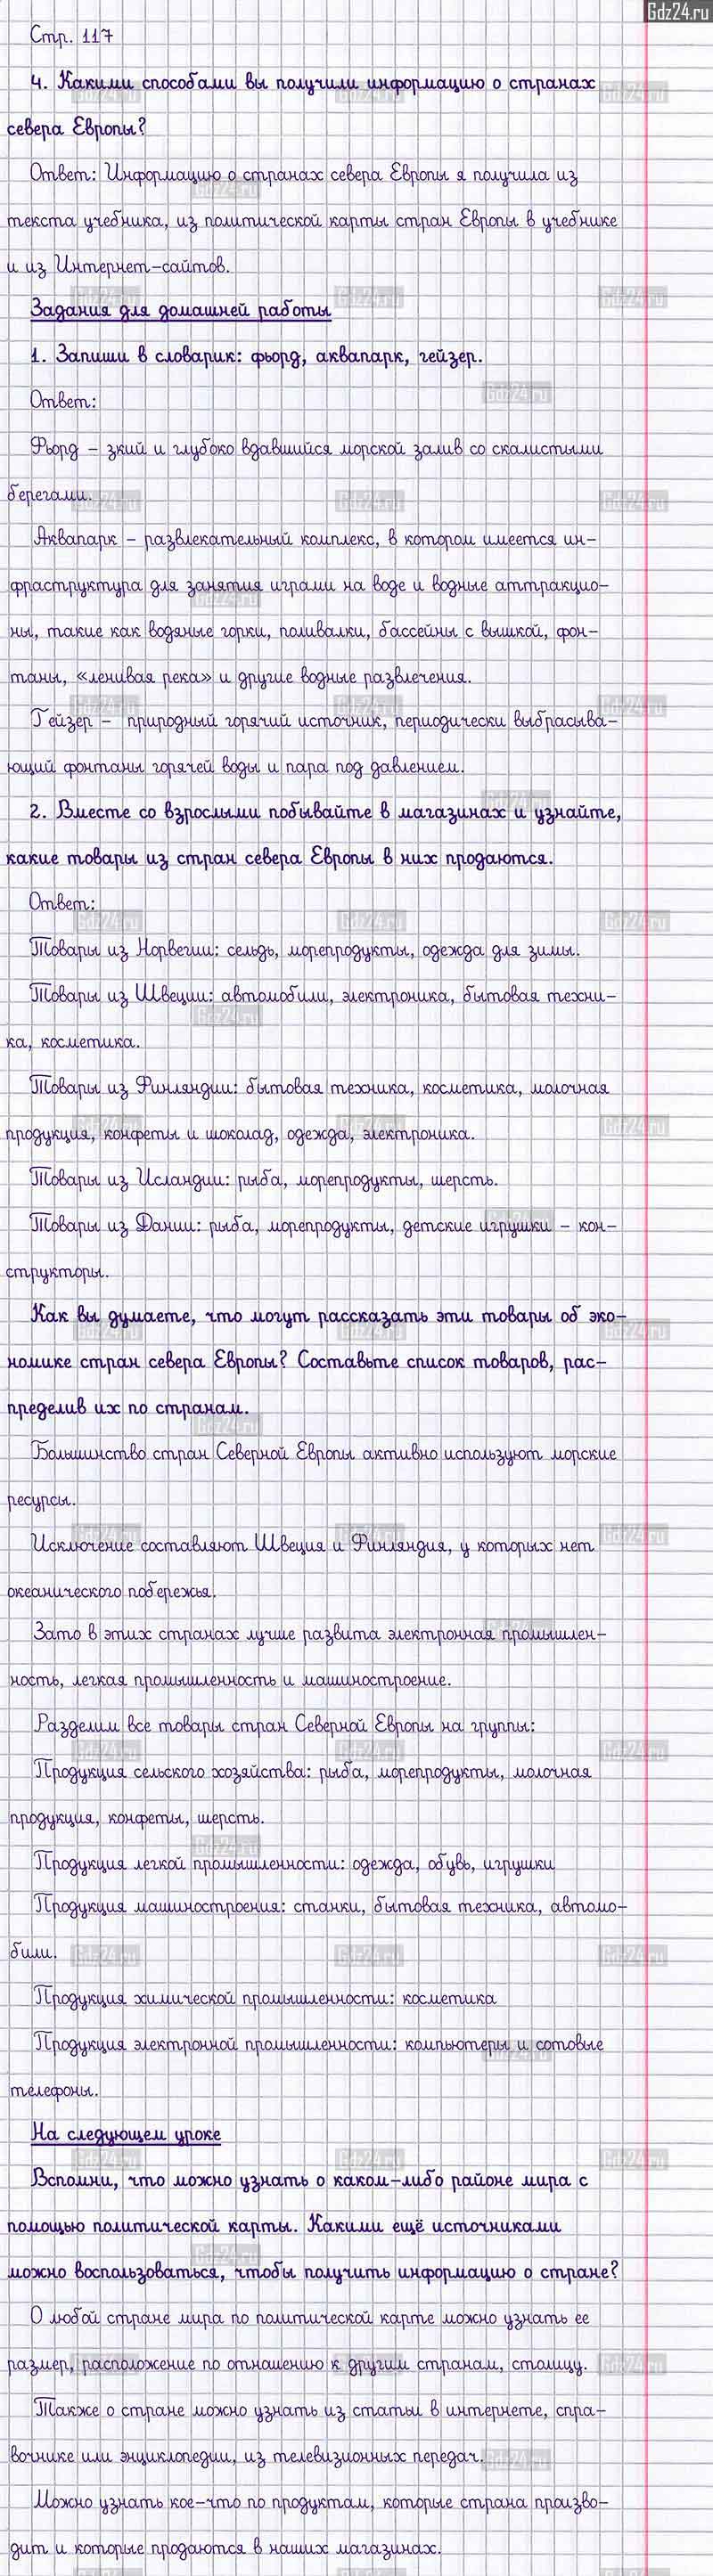 Gdz24.ru
Стр. 117
4. Какими способами вы получили информацию о странах
севера Европы?
Ответ: Информацию о странах севера Европы я получила из
текста учебника, из политической карты стран Европы в учебнике
и из Интернет-сайтов.
Задания для домашней работы
1. Запиши в словарик: фьорд, аквапарк, гейзер.
Ответ:
Фьорд – зкий и глубоко вдавшийся морской залив со скалистыми
берегами.
Аквапарк – развлекательный комплекс, в котором имеется ин-
фраструктура для занятия играми на воде и водные аттракцио-
ны, такие как водяные горки, поливалки, бассейны с вышкой, фон-
таны, «ленивая река» и другие водные развлечения.
Гейзер – природный горячий источник, периодически выбрасыва-
ющий фонтаны горячей воды и пара под давлением.
2. Вместе со взрослыми побывайте в магазинах и узнайте,
какие товары из стран севера Европы в них продаются.
Ответ:
Товары из Норвегии: сельдь, морепродукты, одежда для зимы.
Товары из Швеции: автомобили, электроника, бытовая техни-
ка, косметика.
Товары из Финляндии: бытовая техника, косметика, молочная
продукция, конфеты и шоколад, одежда, электроника.
Товары из Исландии: рыба, морепродукты, шерсть.
Товары из Дании: рыба, морепродукты, детские игрушки – кон-
структоры.
Как вы думаете, что могут рассказать эти товары об эко-
номике стран севера Европы? Составьте список товаров, рас-
пределив их по странам.
Большинство стран Северной Европы активно используют морские
ресурсы.
Исключение составляют Швеция и Финляндия, у которых нет
океанического побережья.
Зато в этих странах лучше развита электронная промышлен-
ность, легкая промышленность и машиностроение.
Разделим все товары стран Северной Европы на группы:
Продукция сельского хозяйства: рыба, морепродукты, молочная
продукция, конфеты, шерсть.
Продукция легкой промышленности: одежда, обувь, игрушки
Продукция машиностроения: станки, бытовая техника, автомо-
били.
Продукция химической промышленности: косметика
Продукция электронной промышленности: компьютеры и сотовые
телефоны.
На следующем уроке
Вспомни, что можно узнать о каком-либо районе мира с
помощью политической карты. Какими ещё источниками
можно воспользоваться, чтобы получить информацию о стране?
О любой стране мира по политической карте можно узнать ее
размер, расположение по отношению к другим странам, столицу.
Также о стране можно узнать из статьи в интернете, спра-
вочнике или энциклопедии, из телевизионных передач.
Можно узнать кое-что по продуктам, которые страна произво-
дит и которые продаются в наших магазинах.